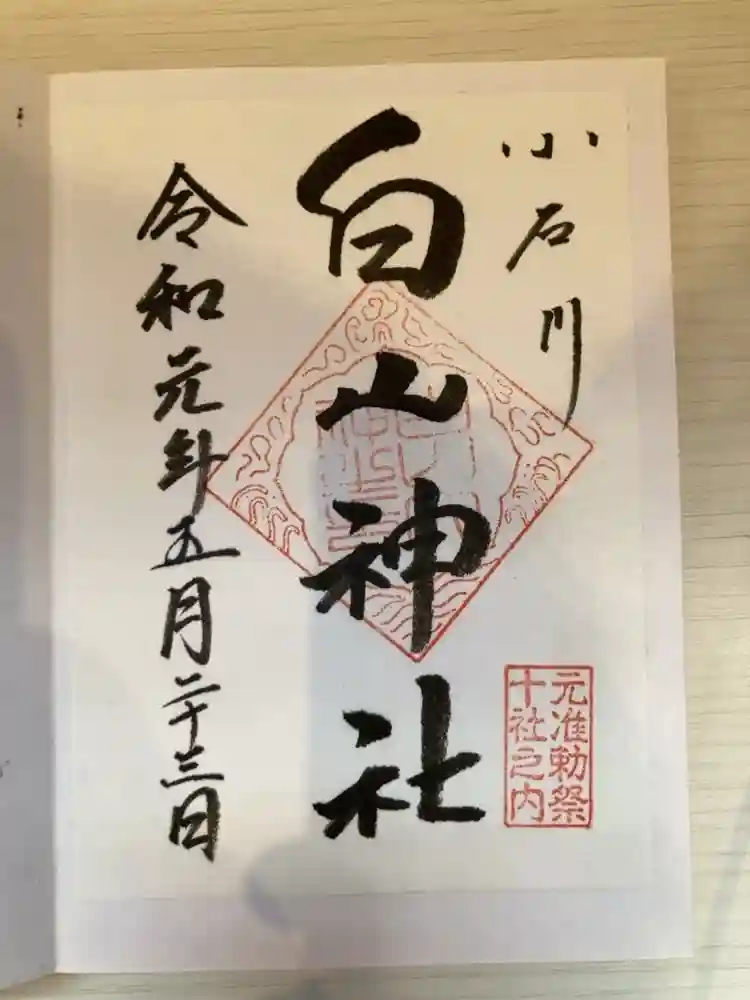 小石川
白山神社
令和元年五月二十三日
元准勅祭
十社之内